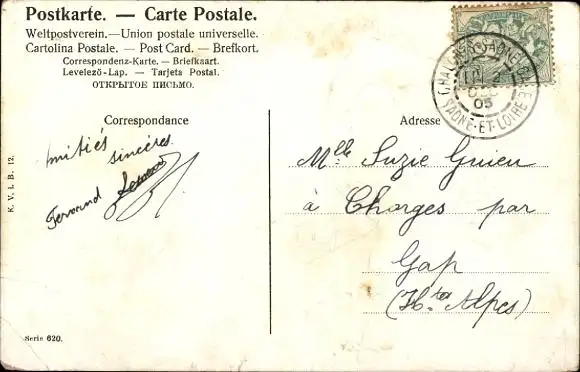 Postkarte. — Carte Postale.
Weltpostverein.—Union postale universelle.
Cartolina Postale. — Post Card. — Brefkort.
Correspondenz-Karte. — Briefkaart.
Levelező-Lap. — Tarjeta Postal.
ОТКРЫТОЕ ПИСЬМО.
CHALON-S-SAONE
05
SAONE-ET-LOIRE
Correspondance
Amitiés sincères
Fernand
K. V. i. B. 12.
Serie 620.
Adresse
Mlle Suzie Guieu
à Chorges par
Gap
(Htes Alpes)